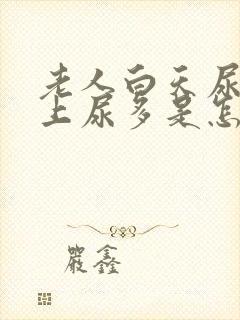 老人白天尿
上尿多是怎
严鑫